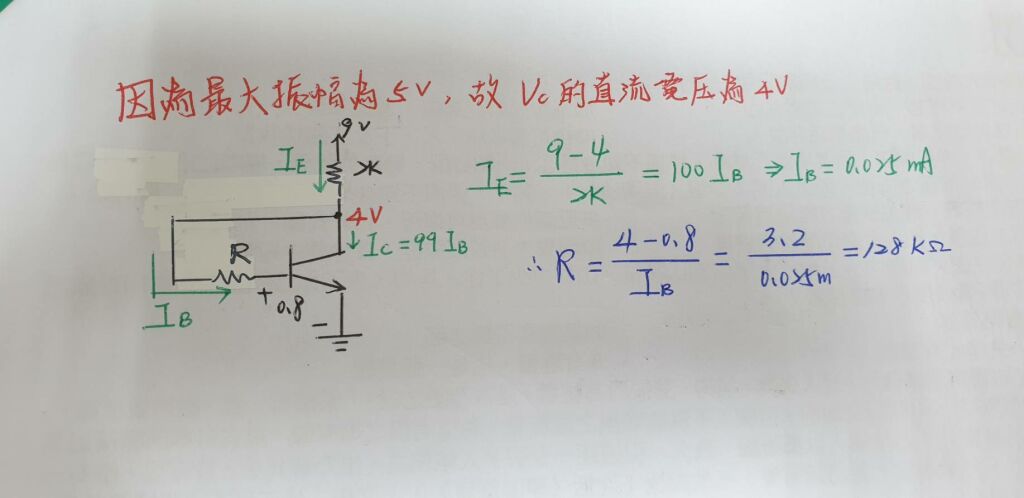 因為最大振幅為5V，故 Vc 的直流電压為 4V
9V
IE
2K
4V
Ic = 99 IB
R
+ 0.8 −
IB
IE = (9-4)/2K = 100 IB ⇒ IB = 0.025 mA
∴ R = (4-0.8)/IB = 3.2/0.025m = 128 KΩ